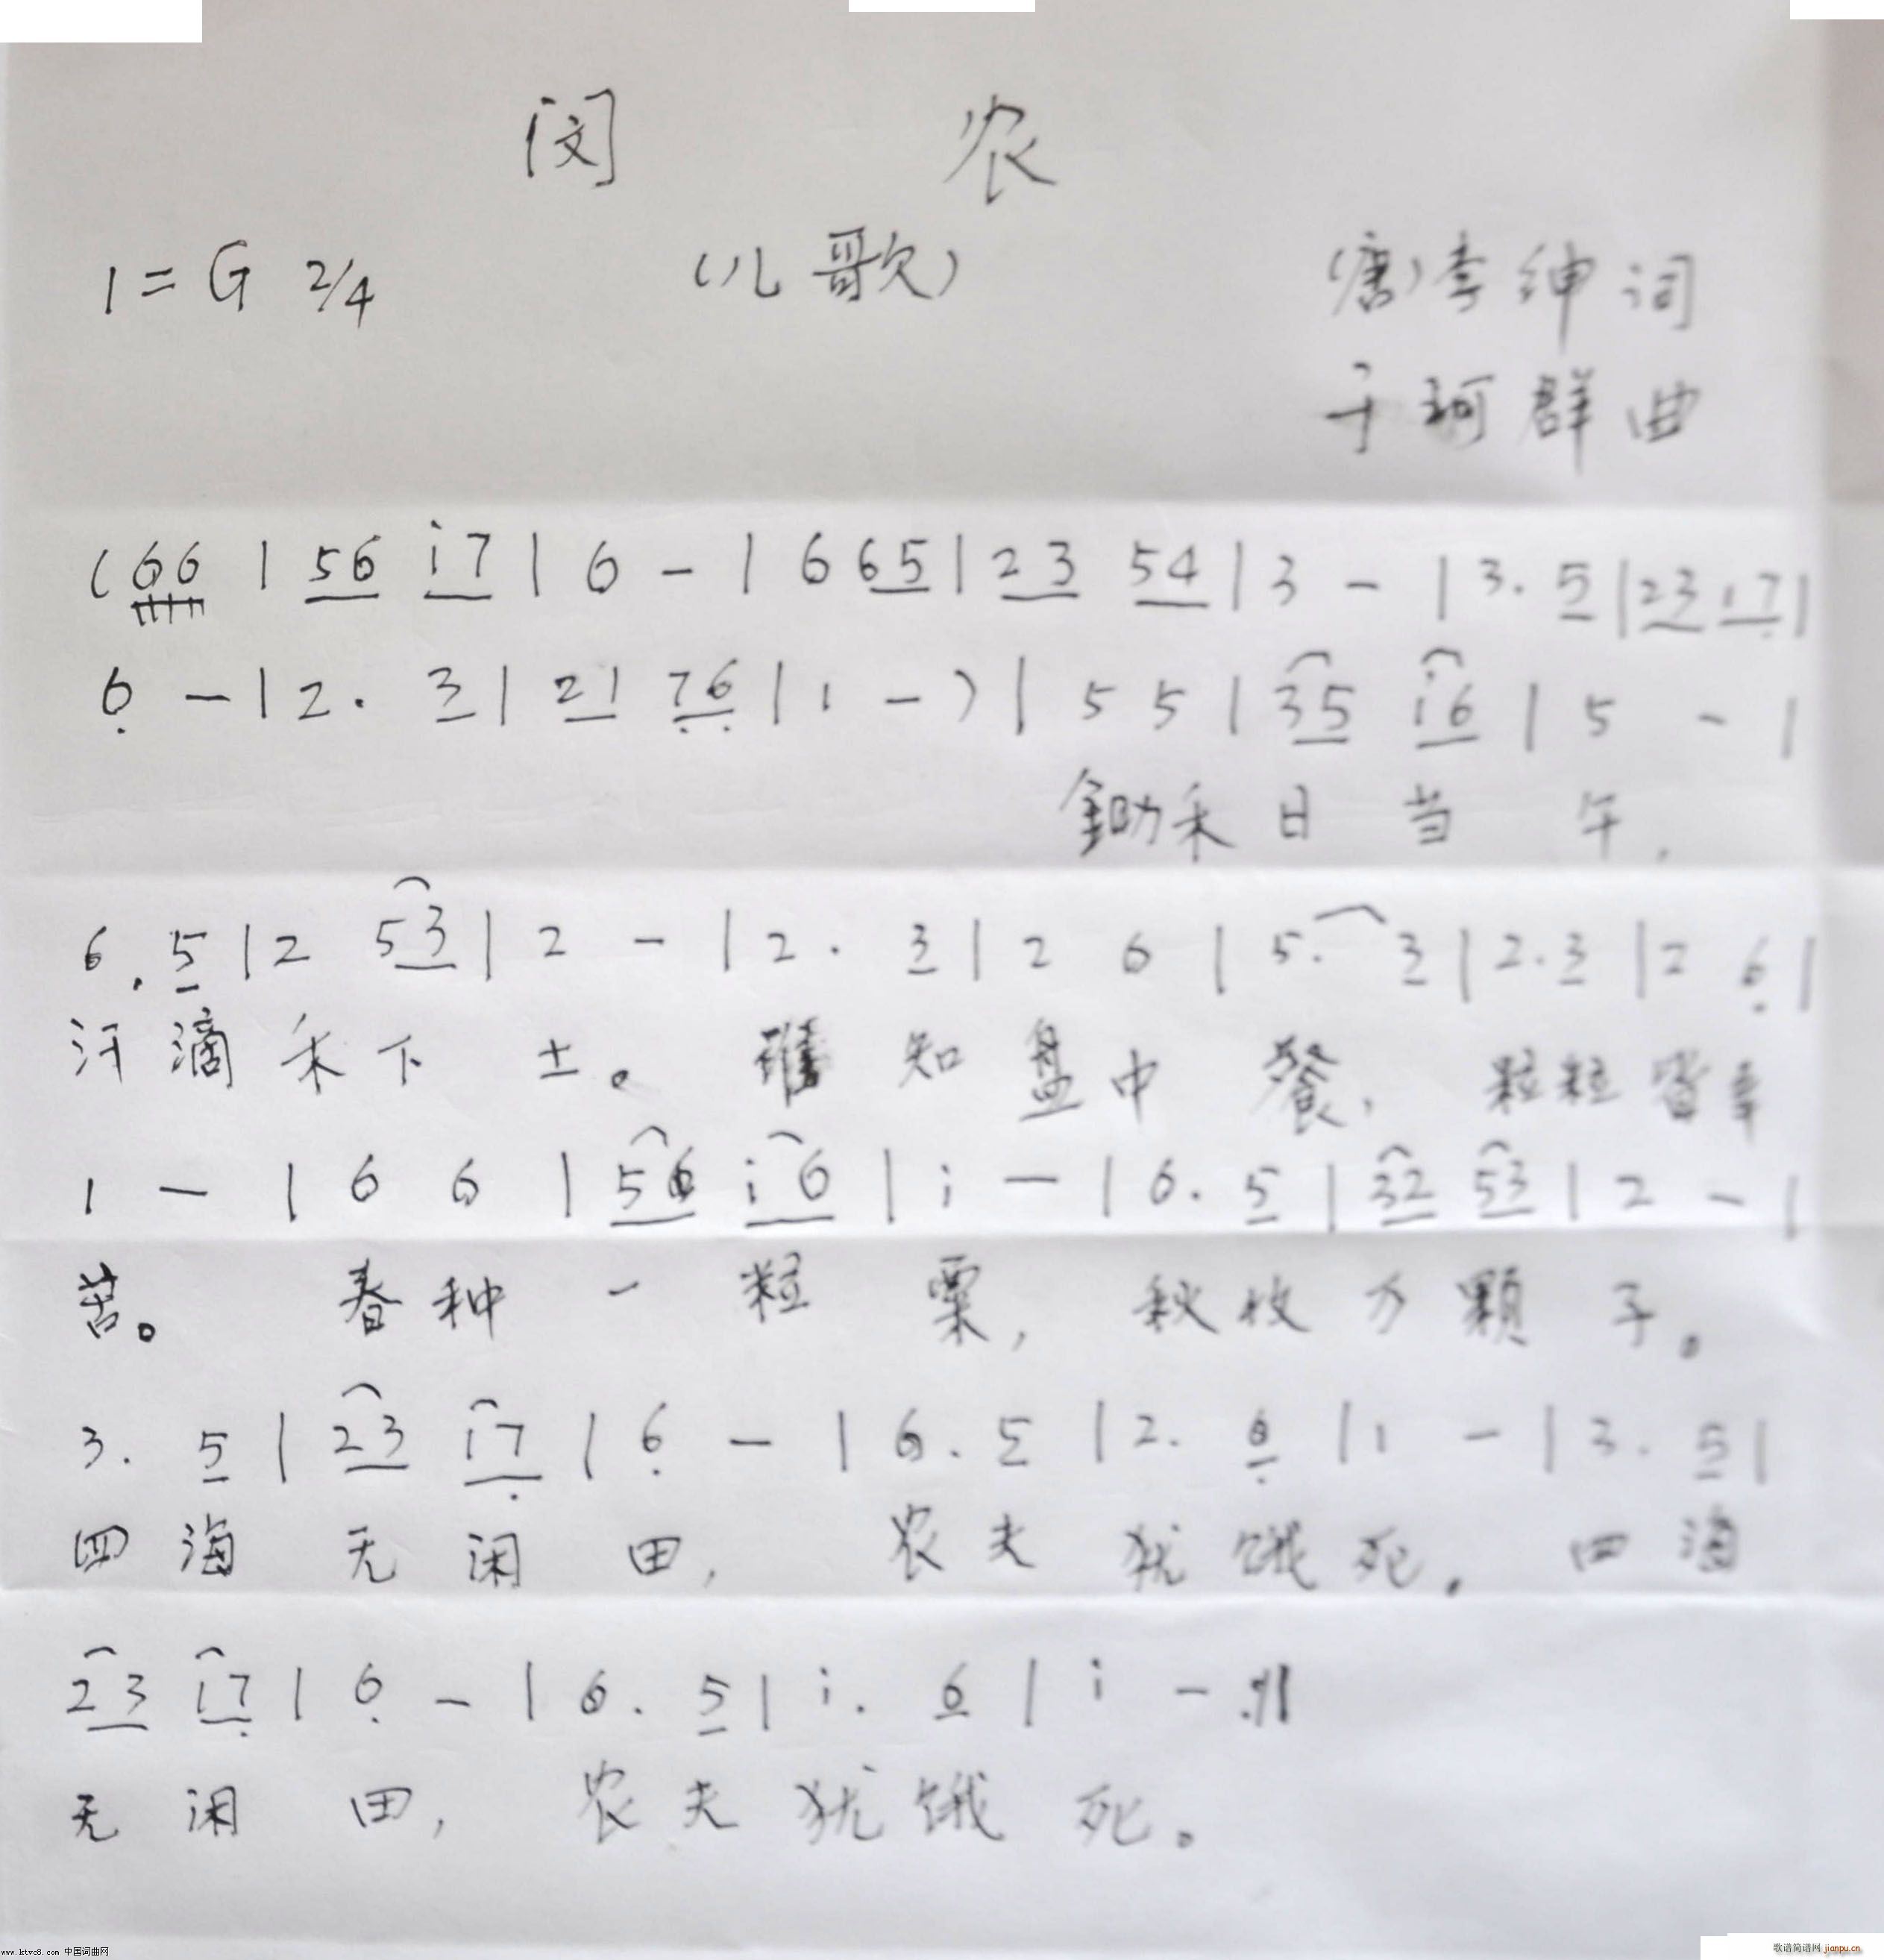 闵 农
1=G 2/4 (儿歌) (唐)李绅词
于珂群曲
(66 | 56 i7 | 6 - | 6 65 | 23 54 | 3 - | 3. 5 | 23 17 |
6 - | 2. 3 | 21 76 | 1 - ) | 5 5 | 35 i6 | 5 - |
鋤禾日当午,
6. 5 | 2 53 | 2 - | 2. 3 | 2 6 | 5. 3 | 2. 3 | 2 6 |
汗滴禾下土。谁知盘中餐, 粒粒皆辛
1 - | 6 6 | 56 i6 | i - | 6. 5 | 32 53 | 2 - |
苦。 春种一粒粟, 秋收万颗子。
3. 5 | 23 17 | 6 - | 6. 5 | 2. 6 | 1 - | 3. 5 |
四海无闲田, 农夫犹饿死。四海
23 17 | 6 - | 6. 5 | i. 6 | i - :||
无闲田, 农夫犹饿死。
www.ktvc8.com 中国词曲网
歌谱简谱网 jianpu.cn